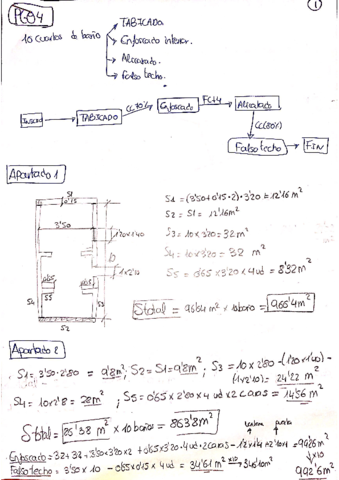 PG04
1
10 cuartos de baño
TABICADA
Enfoscado interior.
Alicatado.
Falso techo.
Inicio
TABICADO
CC70%
Enfoscado
FC+4
Alicatado
CC(80%)
Falso techo
FIN
Apartado 1
S1
0'15
3'50
1'20x1'40
1x2'10
S4
S5
S3
S2
S1 = (3'50+0'15·2)·3'20 = 12'16 m²
S2 = S1 = 12'16 m²
S3 = 10 x 3'20 = 32 m²
S4 = 10 x 3'20 = 32 m²
S5 = 0'65 x 3'20 x 4 ud = 8'32 m²
Stotal = 96'64 m² x 10 baño = 966'4 m²
Apartado 2
S1 = 3'50·2'80 = 9'8 m²; S2 = S1 = 9'8 m²; S3 = 10 x 2'80 - (1'20·1'40) -
(1x2'10) = 24'22 m²
S4 = 10 x 2'8 = 28 m²; S5 = 0'65 x 2'80 x 4 ud x 2 caras = 14'56 m²
Stotal = 86'38 m² x 10 baño = 863'8 m²
Enfoscado = 32+32+3'50x3'20x2 + 0'65x3'20·4ud·2caras - 1'2x1'4 + 2'10x1 = 99'26 m²
x10
Falso techo = 3'50 x 10 - 0'65 x 0'15 x 4 ud = 34'61 m² x10 346'10 m²
992'6 m²